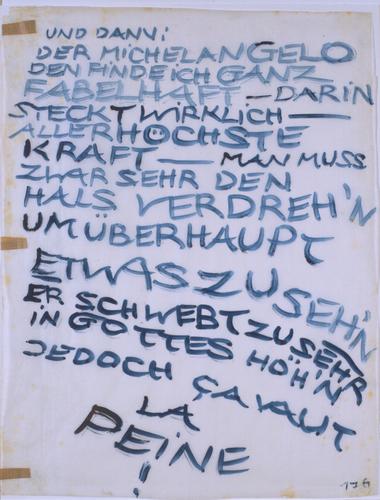 UND DANN:
DER MICHELANGELO
DEN FINDE ICH GANZ
FABELHAFT — DARIN
STECKT WIRKLICH —
ALLERHÖCHSTE
KRAFT — MAN MUSS
ZWAR SEHR DEN
HALS VERDREH'N
UM ÜBERHAUPT
ETWAS ZU SEH'N
ER SCHWEBT ZU SEHR
IN GOTTES HÖH'N
JEDOCH ÇA VAUT
LA
PEINE
!